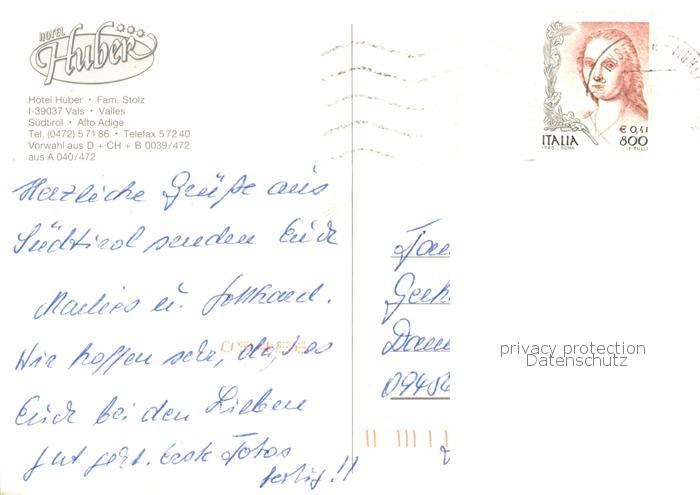 HOTEL
Huber
Hotel Huber • Fam. Stolz
I-39037 Vals • Valles
Südtirol • Alto Adige
Tel. (0472) 5 71 86 • Telefax 5 72 40
Vorwahl aus D + CH + B 0039/472
aus A 040/472
Herzliche Grüße aus
Südtirol senden Euch
Marlies u. Gotthard.
Wir hoffen sehr, daß es
Euch bei den Lieben
gut geht. Erste Fotos
fertig!!
€ 0,41
ITALIA 800
Fam
Gerh
094
privacy protection
Datenschutz